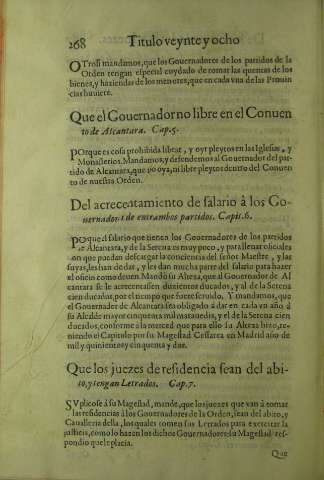 268 Titulo veynte y ocho
OTrosi mandamos, que los Gouernadores de los partidos de la
Orden tengan especial cuydado de tomar las quentas de los
bienes, y haziendas de los menores, que en cada vna de las Prouin
cias huuiere.
Que el Gouernador no libre en el Conuen
to de Alcantara. Cap.5.
POrque es cosa prohibida librar, y oyr pleytos en las Iglesias, y
Monasterios. Mandamos, y defendemos al Gouernador del par-
tido de Alcantara, que no oya, ni libre pleytos dentro del Conuen
to de nuestra Orden.
Del acrecentamiento de salario à los Go-
uernadores de entrambos partidos. Capit.6.
POrque el salario que tienen los Gouernadores de los partidos
de Alcantara, y de la Serena es muy poco, y para llenar oficiales
con que puedan descargar la conciencia del señor Maestre, y las
suyas, les han de dar, y les dan mucha parte del salario para hazer
el oficio como deuen. Mandó su Alteza, que al Gouernador de Al
cantara se le acrecentassen duzientos ducados, y al de la Serena
cien ducados, por el tiempo que fuere seruido. Y mandamos, que
el Gouernador de Alcantara sea obligado à dar en cada vn año à
su Alcalde mayor cincuenta mil marauedis, y el de la Serena cien
ducados, conforme à la merced que para ello su Alteza hizo, te-
niendo el Capitulo por su Magestad Cesarea en Madrid año de
mil y quinientos y cincuenta y dos.
Que los juezes de residencia sean del abi-
to, y tengan Letrados. Cap.7.
SVplicose à su Magestad, mande, que los juezes que van à tomar
las residencias à los Gouernadores de la Orden, sean del abito, y
Caualleria della, los quales tomen sus Letrados para exercitar la
justicia, como lo hazen los dichos Gouernadores: su Magestad res-
pondio que le placia.
Que